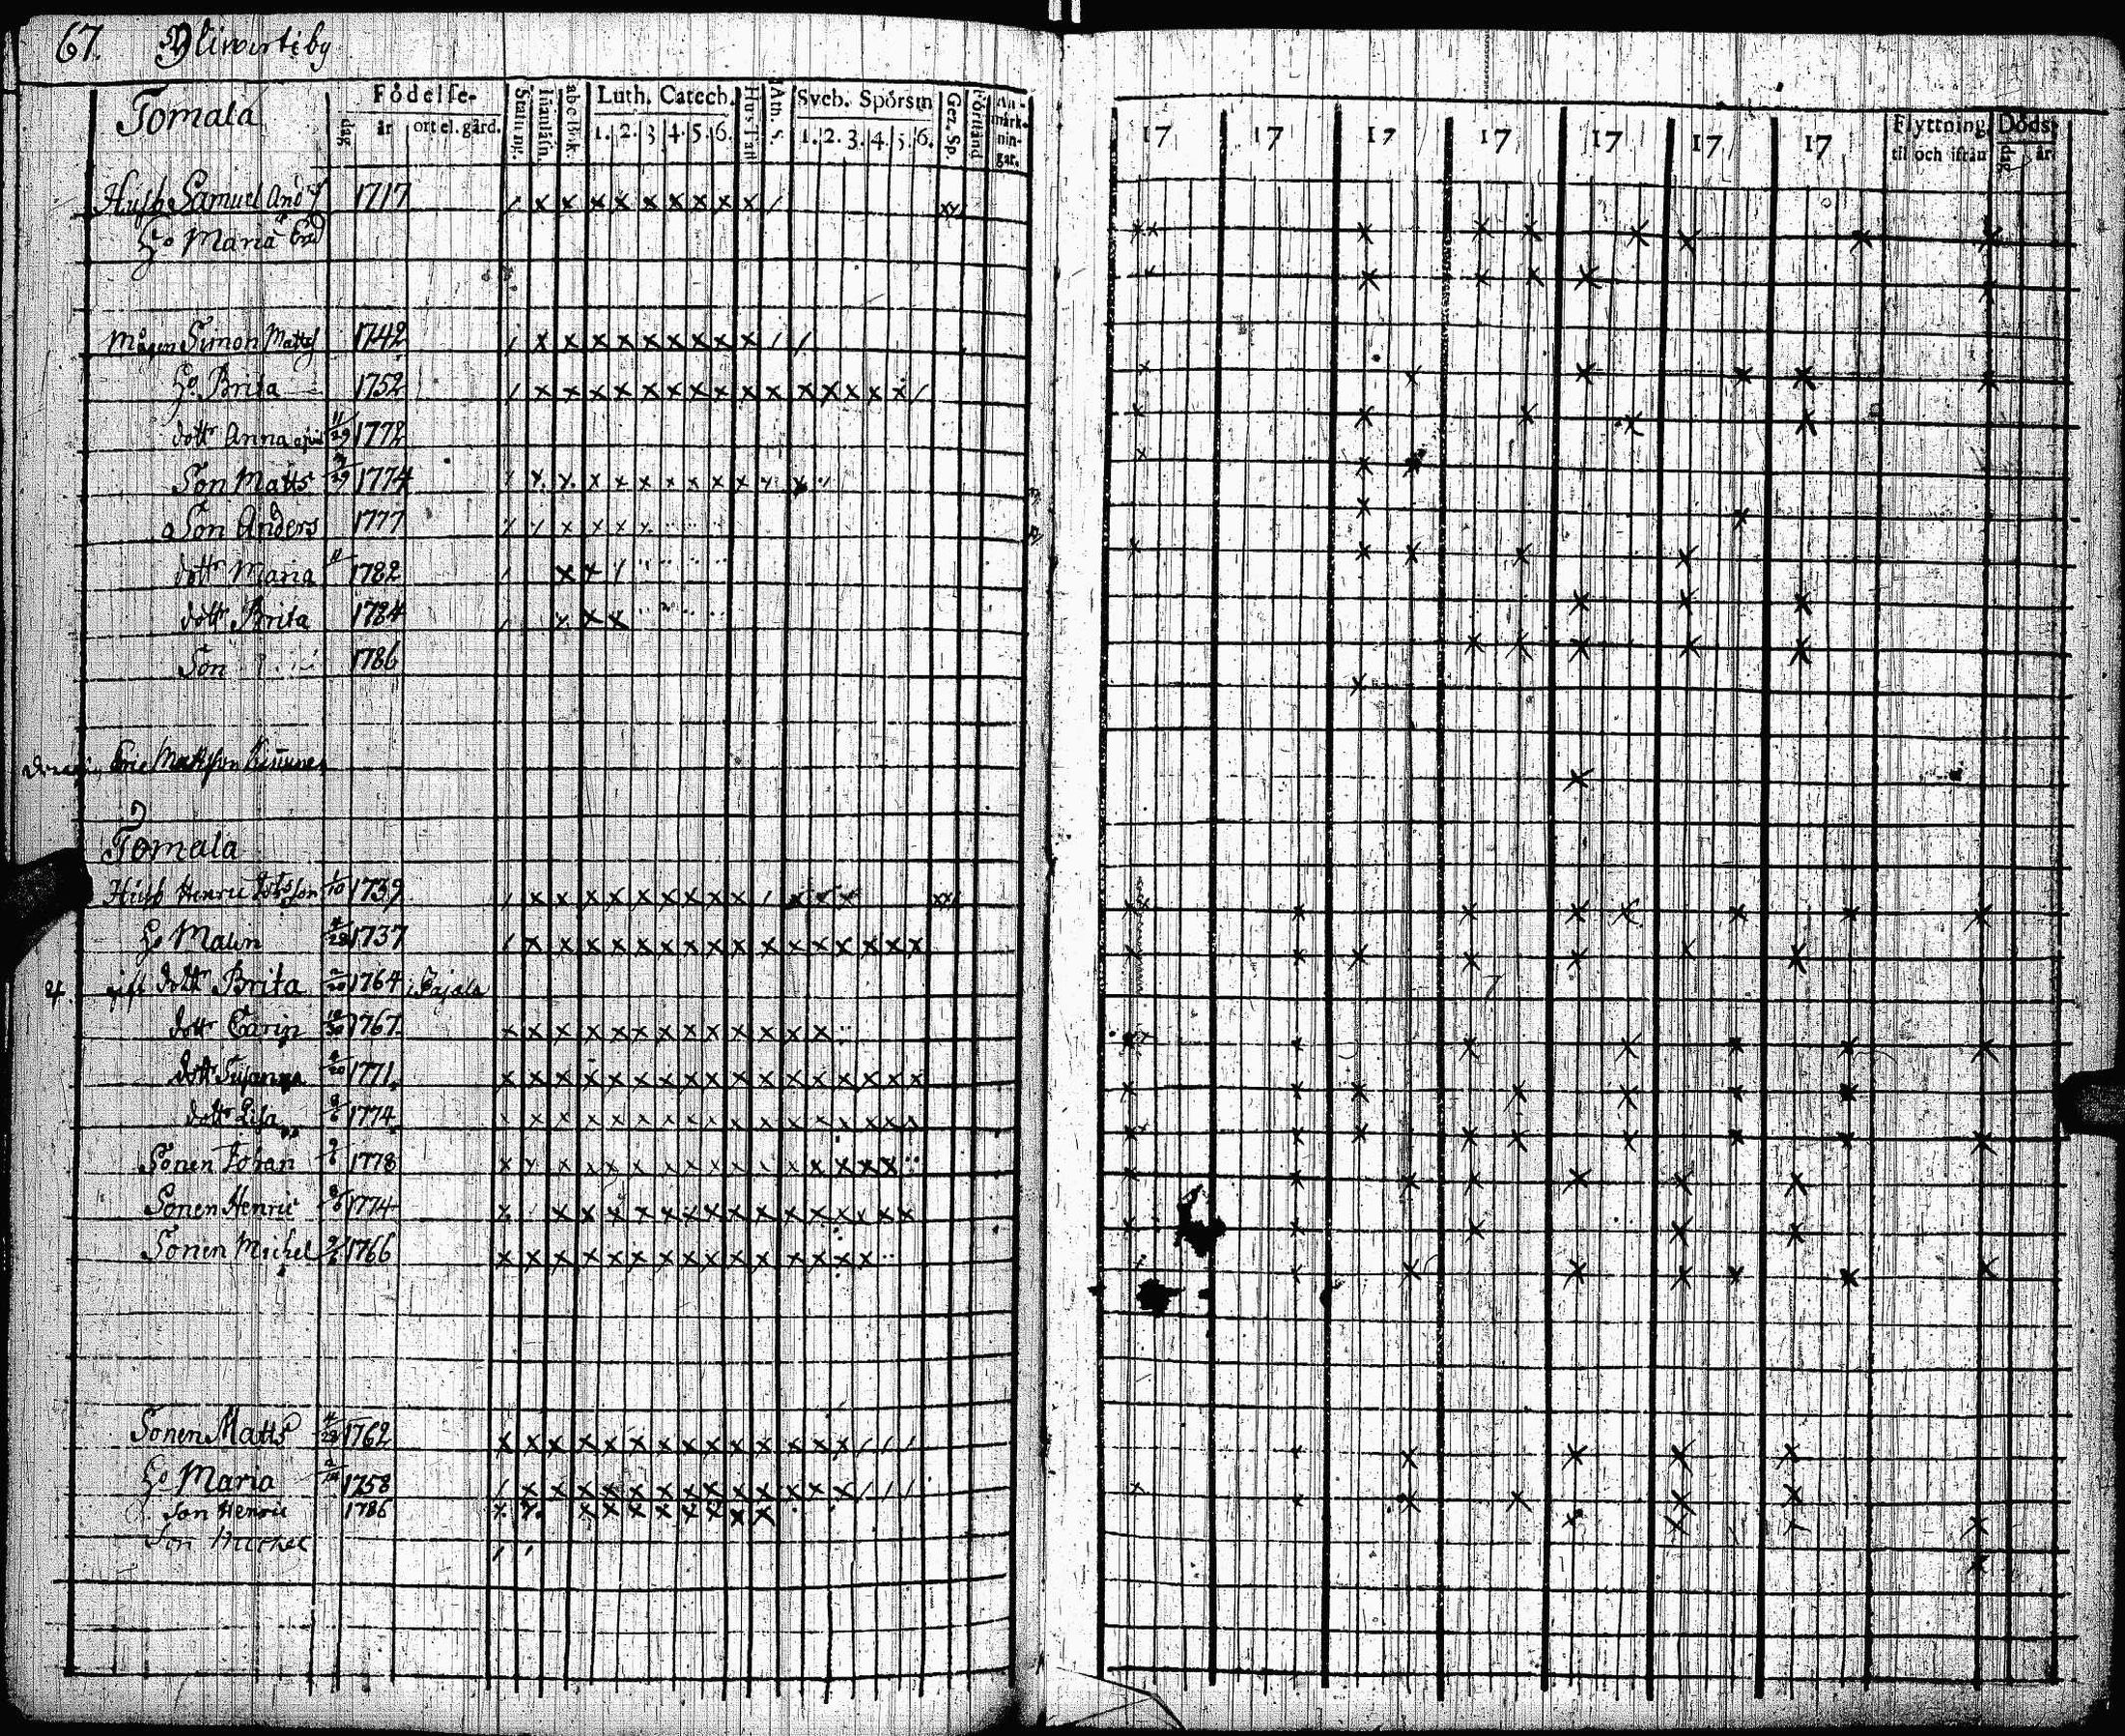 67. Ylivirti by
Tomala
Födelse-
dag
år
ort el. gård.
abc-Bok.
Luth. Catech.
1. 2. 3. 4. 5. 6.
Ath. S.
Sveb. Spörsm
1. 2. 3. 4. 5. 6.
Gez. Sp.
Förstånd
An-märk-nin-gar.
17 17 17 17 17 17 17
Flyttning
til och ifrån
Döds-
dag år
Husb Samuel And 1717
Ho Maria
Mågen Simon Matts 1742
Ho Brita 1752
dottr Anna 11/29 1772
Son Matts 1774
Son Anders 1777
dottr Maria 1782
dottr Brita 1784
Son 1786
Eric Mattsson
Tomala
Husb Henric 1739
Ho Malin 1737
gift dottr Brita 1764 i Pajala
dottr Carin 1767
dottr Susanna 1771
dottr Lisa 1774
Sonen Johan 1778
Sonen Henric 1774
Sonen Michel 1766
Sonen Matts 1762
Ho Maria 1758
Son Henric 1786
Son Michel